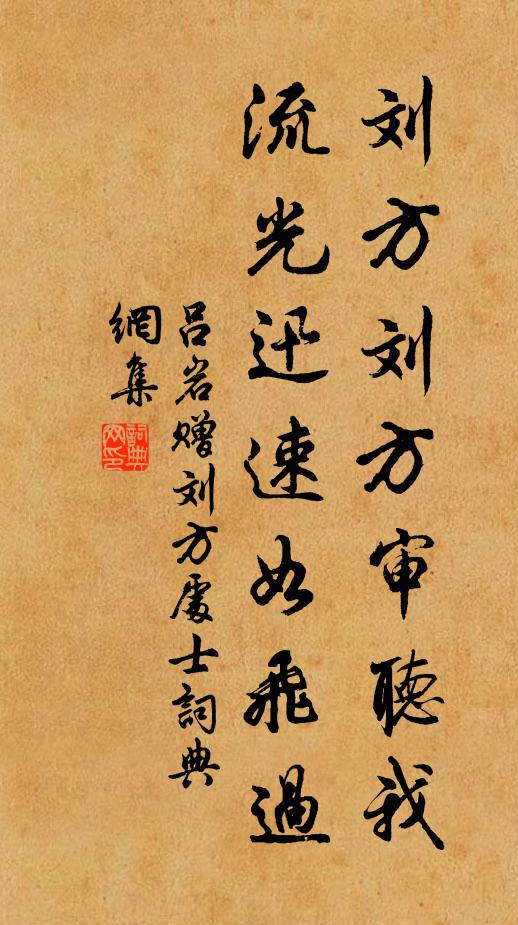 刘方刘方审聽我
流光迅速如飛過
吕岩赠刘方處士詞典
網集
詞典网印